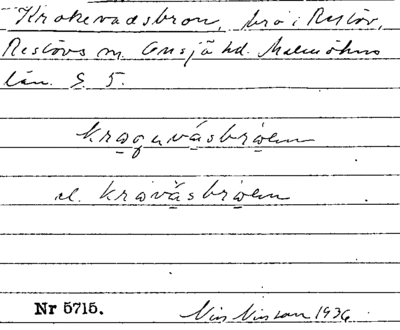 Krokevadsbron, bro i Röstöv,
Röstövs sn. Onsjö hd. Malmöhus
län. S 5.
kraguvásbroen
el. kravásbroen
Nr 5715.
Nils Nilsson 1936